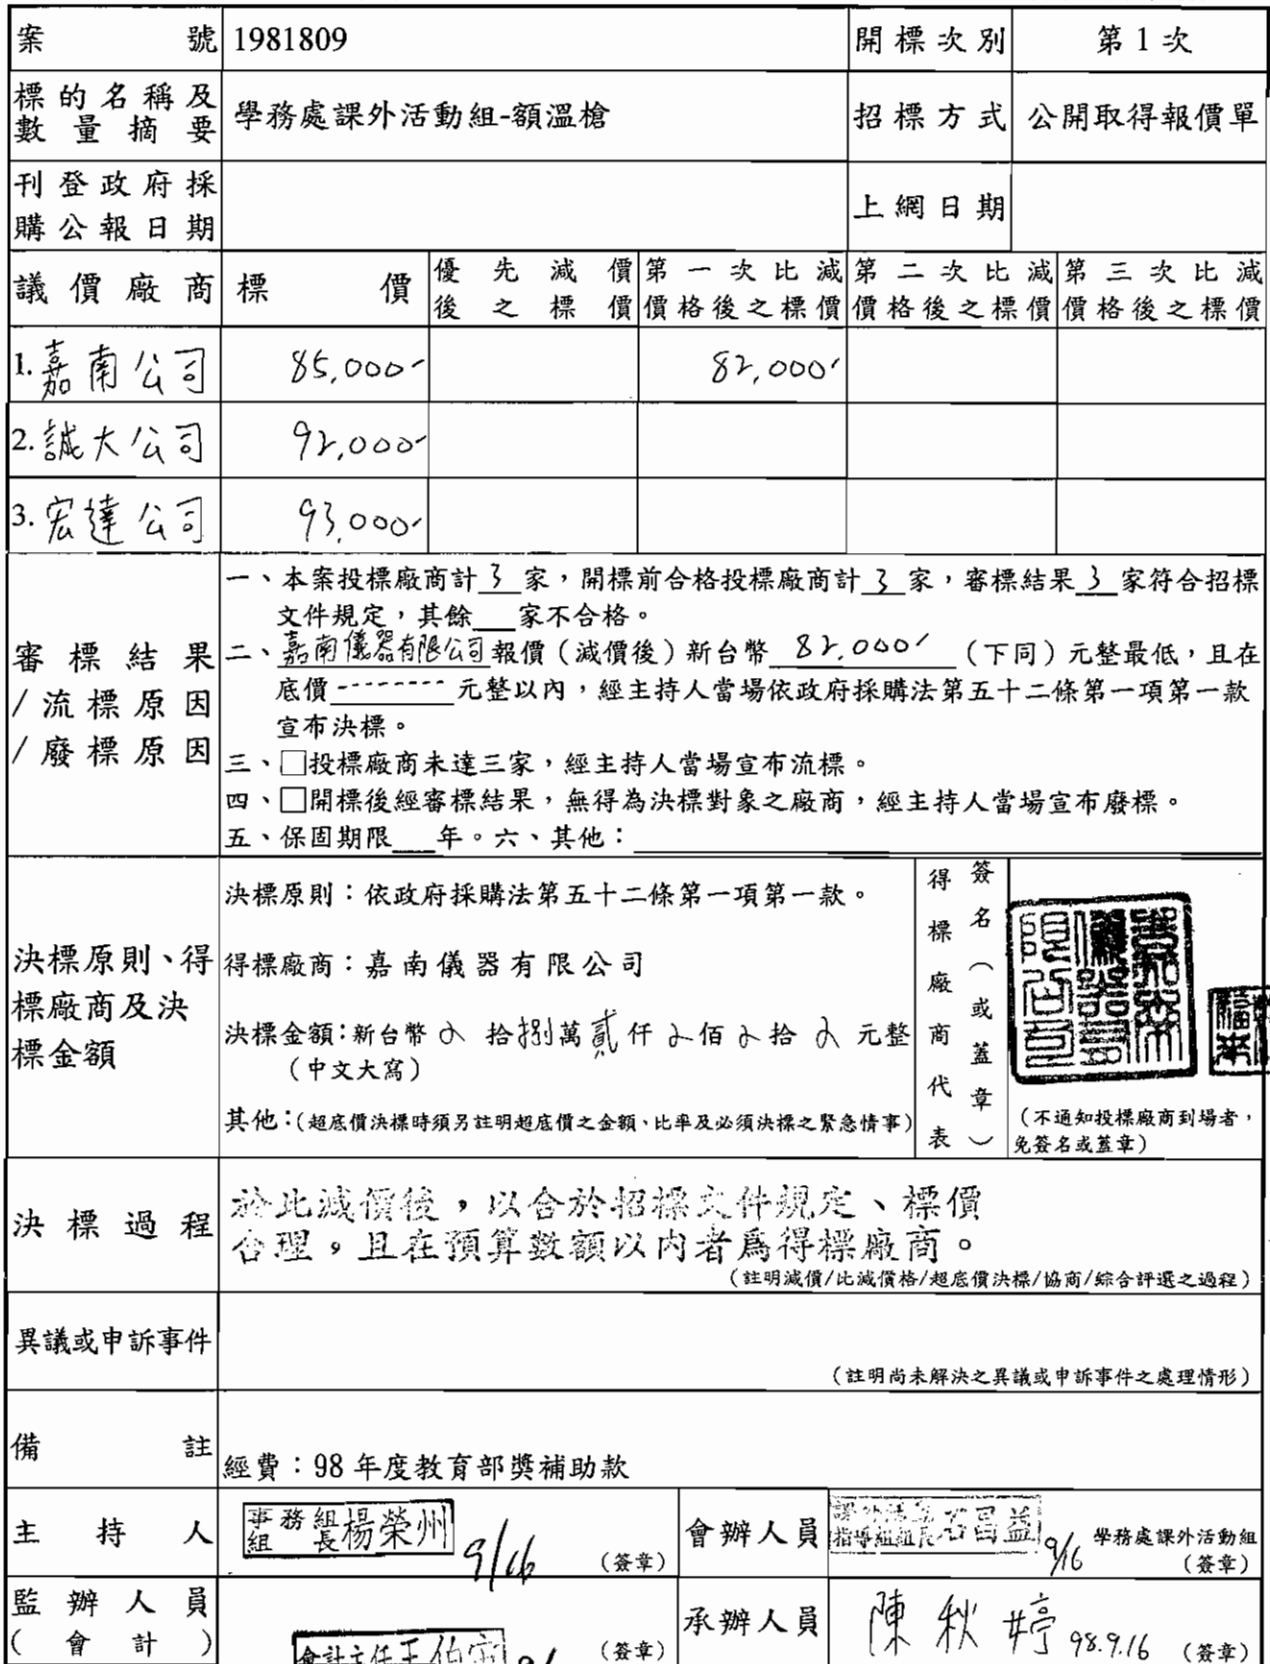 案號 1981809 開標次別 第1次
標的名稱及數量摘要 學務處課外活動組-額溫槍 招標方式 公開取得報價單
刊登政府採購公報日期 上網日期
議價廠商 標價 優先減價後之標價 第一次比減價格後之標價 第二次比減價格後之標價 第三次比減價格後之標價
1.嘉南公司 85,000- 82,000-
2.誠大公司 92,000-
3.宏達公司 93,000-
審標結果/流標原因/廢標原因
一、本案投標廠商計3家，開標前合格投標廠商計3家，審標結果3家符合招標
文件規定，其餘__家不合格。
二、嘉南儀器有限公司報價（減價後）新台幣 82,000- （下同）元整最低，且在
底價--------元整以內，經主持人當場依政府採購法第五十二條第一項第一款
宣布決標。
三、□投標廠商未達三家，經主持人當場宣布流標。
四、□開標後經審標結果，無得為決標對象之廠商，經主持人當場宣布廢標。
五、保固期限__年。六、其他：
決標原則、得標廠商及決標金額
決標原則：依政府採購法第五十二條第一項第一款。
得標廠商：嘉南儀器有限公司
決標金額：新台幣 拾捌萬貳仟 佰 拾 元整
（中文大寫）
其他：（超底價決標時須另註明超底價之金額、比率及必須決標之緊急情事）
得標廠商代表簽名（或蓋章）
（不通知投標廠商到場者，
免簽名或蓋章）
決標過程
於比減價後，以合於招標文件規定、標價
合理，且在預算數額以內者為得標廠商。
（註明減價/比減價格/超底價決標/協商/綜合評選之過程）
異議或申訴事件
（註明尚未解決之異議或申訴事件之處理情形）
備註 經費：98年度教育部獎補助款
主持人 事務組組長楊榮州 9/16 （簽章） 會辦人員 指導組組長石昌益 9/16 學務處課外活動組
（簽章）
監辦人員（會計） 會計主任王伯 （簽章） 承辦人員 陳秋婷 98.9.16 （簽章）